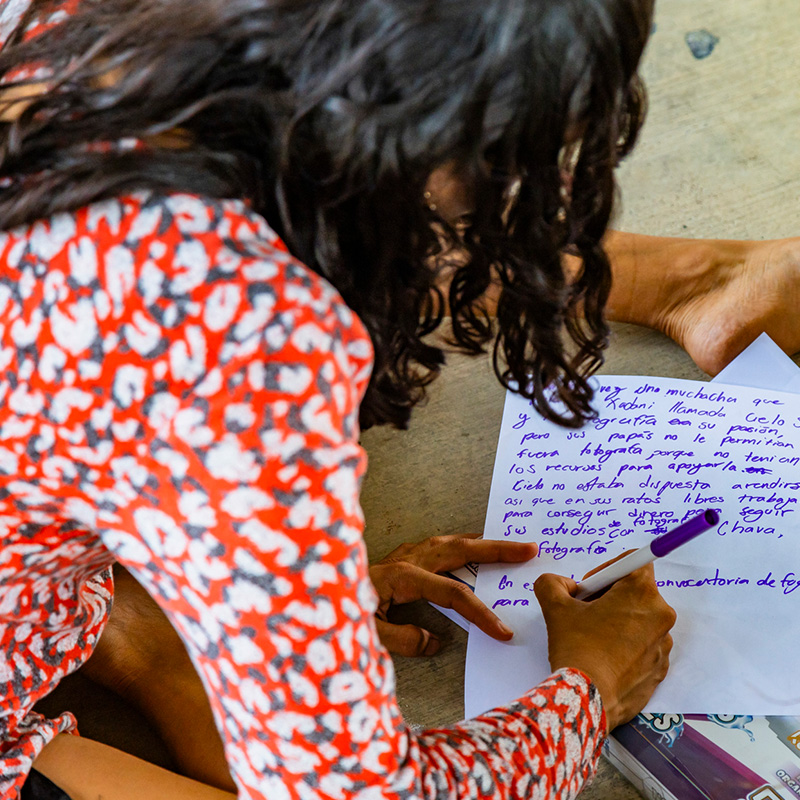 vez una muchacha que
y Kadani llamada Cielo s
fotografía era su pasión,
pero sus papás no le permitían
fuera fotografa porque no tenían
los recursos para apoyarla
Cielo no estaba dispuesta a rendirs
asi que en sus ratos libres trabaja
para conseguir dinero para seguir
sus estudios con Chava,
de fotografí
fotografía
En es convocatoria de fo
para